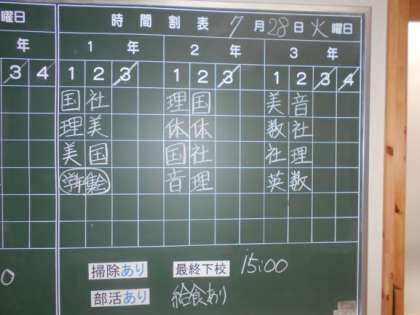 曜日 時間割表 7月28日火曜日
年 1年 2年 3年
3 4 1 2 3 1 2 3 1 2 3 4
国 社 理 国 美 音
理 美 体 体 数 社
美 国 国 社 社 理
学年 総 音 理 英 数
掃除あり 最終下校 15:00
0 部活あり 給食あり